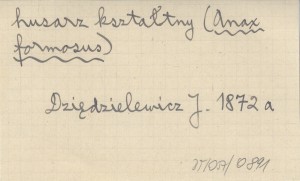 husarz kształtny (Anax
formosus)
Dziędzielewicz J. 1872 a